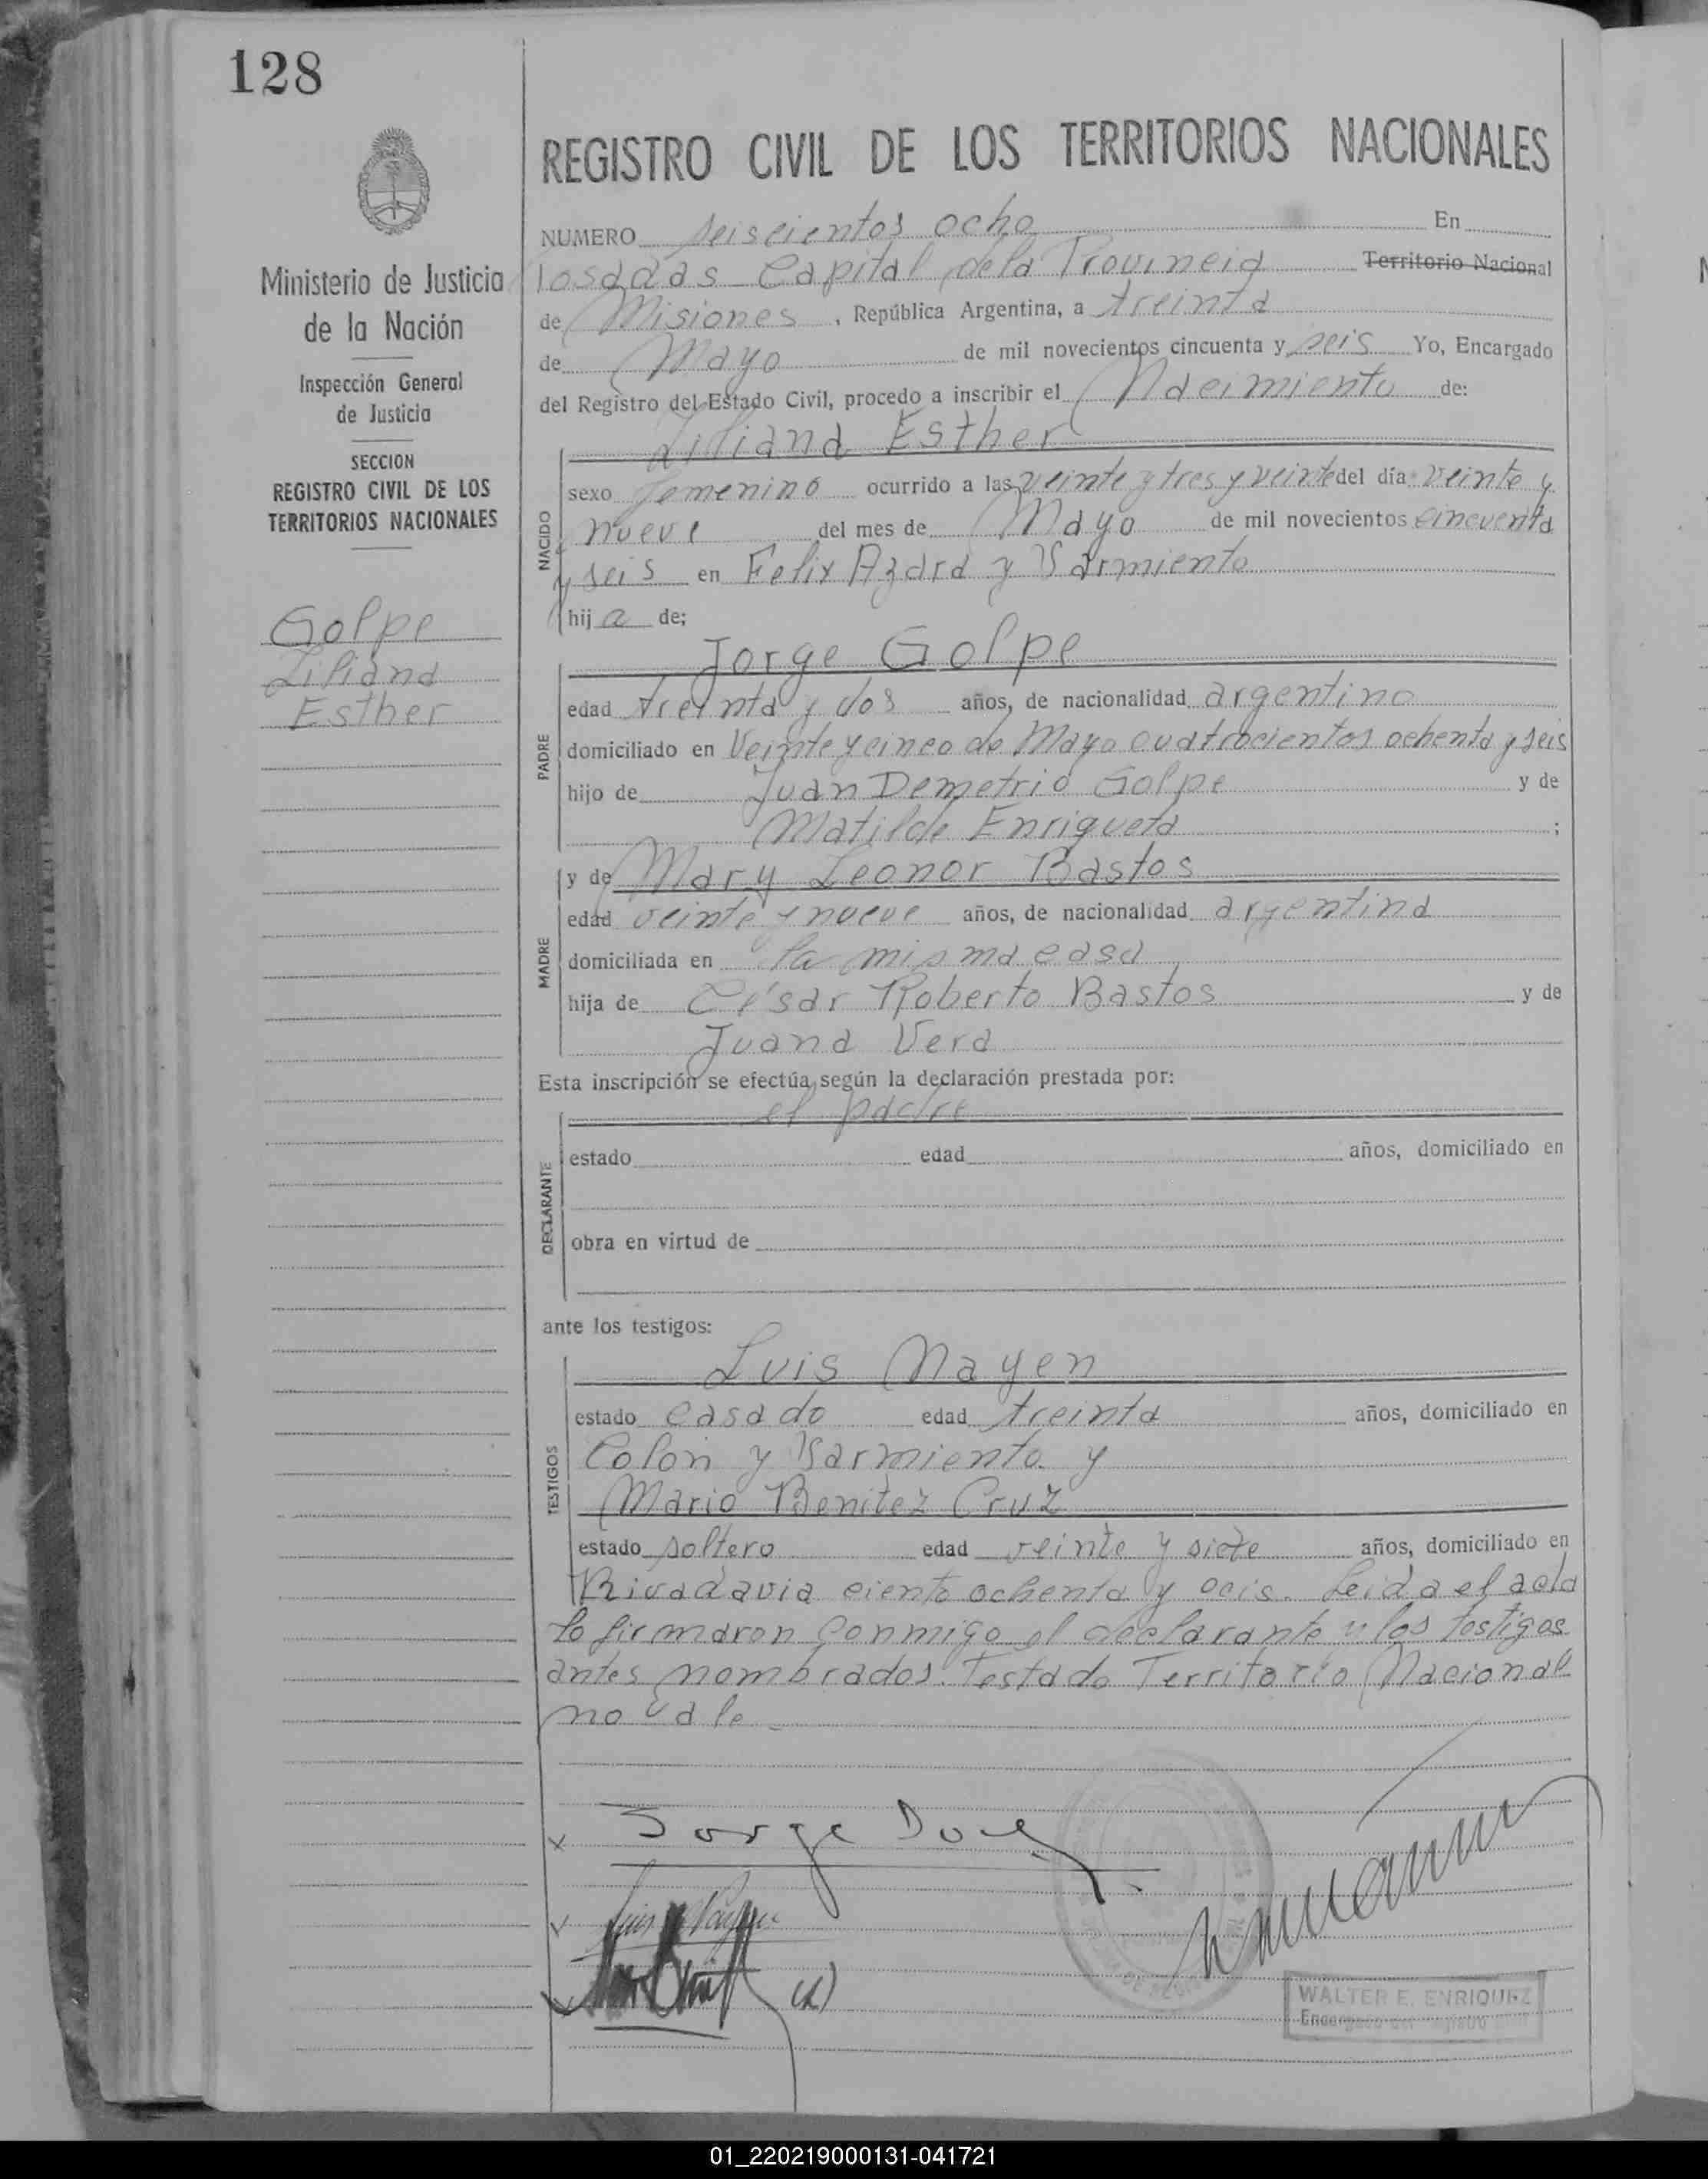 128
REGISTRO CIVIL DE LOS TERRITORIOS NACIONALES
Ministerio de Justicia
de la Nación
Inspección General
de Justicia
SECCION
REGISTRO CIVIL DE LOS
TERRITORIOS NACIONALES
Golpe
Liliana
Esther
NUMERO seiscientos ocho En
Posadas Capital de la Provincia Territorio Nacional
de Misiones, República Argentina, a treinta
de Mayo de mil novecientos cincuenta y seis Yo, Encargado
del Registro del Estado Civil, procedo a inscribir el Nacimiento de:
Liliana Esther
NACIDO
sexo femenino ocurrido a las veinte y tres y veinte del día veinte y
nueve del mes de Mayo de mil novecientos cincuenta
y seis en Felix Azara y Sarmiento
hija de;
Jorge Golpe
PADRE
edad treinta y dos años, de nacionalidad argentino
domiciliado en Veinte y cinco de Mayo cuatrocientos ochenta y seis
hijo de Juan Demetrio Golpe y de
Matilde Enriqueta ;
y de Mary Leonor Bastos
MADRE
edad veinte y nueve años, de nacionalidad argentina
domiciliada en la misma casa
hija de César Roberto Bastos y de
Juana Vera
Esta inscripción se efectúa según la declaración prestada por:
el padre
DECLARANTE
estado edad años, domiciliado en
obra en virtud de
ante los testigos:
Luis Mayen
TESTIGOS
estado casado edad treinta años, domiciliado en
Colón y Sarmiento y
Mario Benitez Cruz
estado soltero edad veinte y siete años, domiciliado en
Rivadavia ciento ochenta y seis. Leida el acta
la firmaron conmigo el declarante y los testigos
antes nombrados. Testado Territorio Nacional
no vale
Jorge
Luis
WALTER E. ENRIQUEZ
Encargado del Registro
01_220219000131-041721